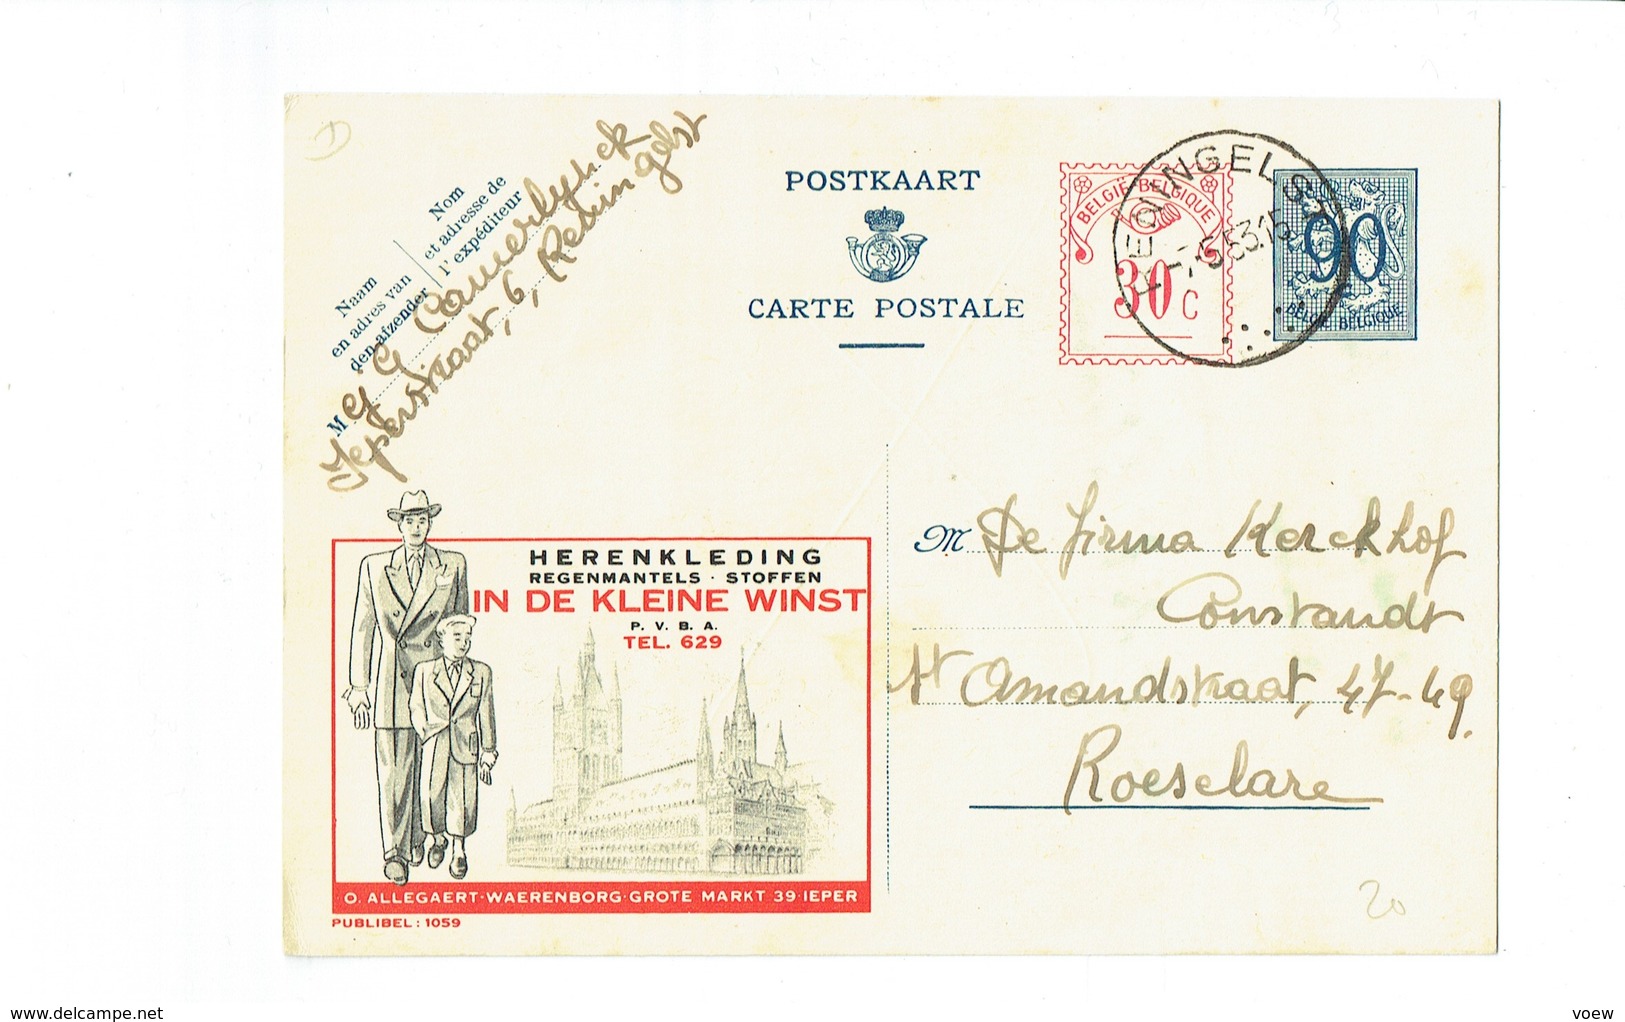 POSTKAART
CARTE POSTALE
BELGIË-BELGIQUE
30 C
REDINGELST
90
BELGIE BELGIQUE
Naam
en adres van
den afzender
Nom
et adresse de
l'expéditeur
M G Camerlynck
Ieperstraat, 6, Reningelst
HERENKLEDING
REGENMANTELS · STOFFEN
IN DE KLEINE WINST
P. V. B. A.
TEL. 629
O. ALLEGAERT·WAERENBORG·GROTE MARKT 39·IEPER
PUBLIBEL : 1059
M De firma Kerckhof
Constandt
St Amandstraat, 47-49.
Roeselare
20
www.delcampe.net
voew